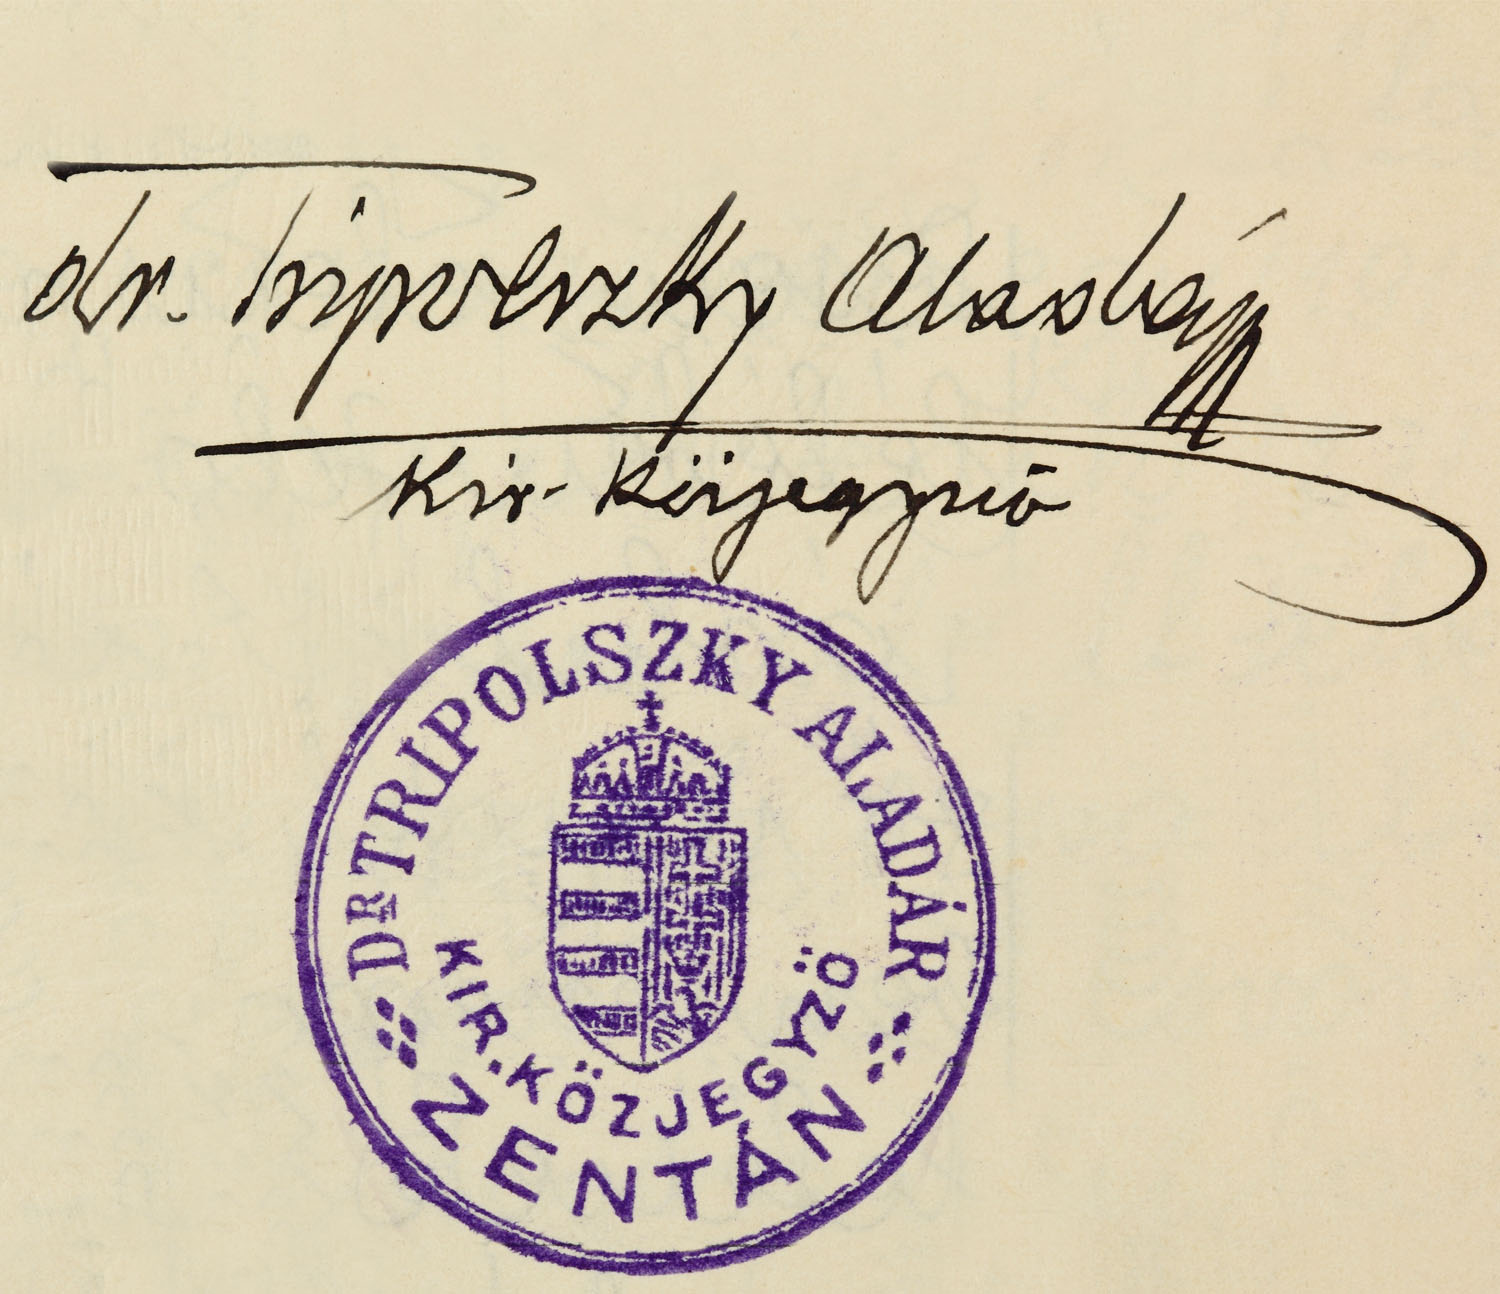 dr. Tripolszky Aladár
kir. közjegyző
DR TRIPOLSZKY ALADÁR
KIR. KÖZJEGYZÖ
ZENTÁN